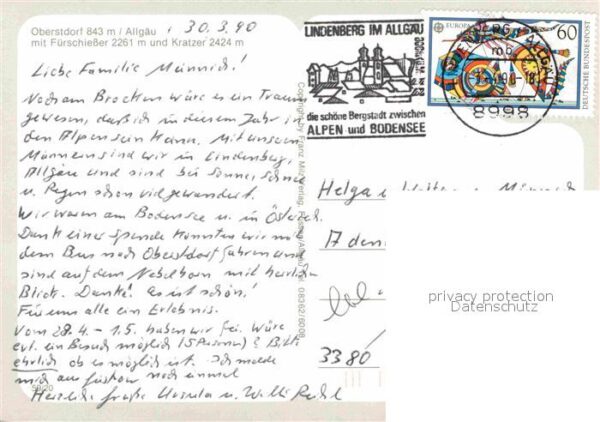 Oberstdorf 843 m / Allgäu
mit Fürschießer 2261 m und Kratzer 2424 m
30.3.90
Liebe Familie Münnich!
Noch am Brocken wäre es ein Traum
gewesen, daß ich in diesem Jahr in
den Alpen sein kann. Mit unseren
Männern sind wir in Lindenberg,
Allgäu und sind bei Sonne, Schnee
u. Regen schon viel gewandert.
Wir waren am Bodensee u. in Österreich.
Dank einer Spende konnten wir mit
dem Bus nach Oberstdorf fahren und
sind auf dem Nebelhorn mit herrlichem
Blick. Danke! Es ist schön!
Für uns alle ein Erlebnis.
Vom 28.4. - 1.5. haben wir frei. Wäre
evt. ein Besuch möglich (5 Personen)? Bitte
ehrlich ob es möglich ist. Ich melde
mich aus noch einmal
Herzliche Grüße Ursula u. Willi
59/20
Copyright by Franz Milz Verlag, Füssen/Allgäu, Tel. 08362/6008
LINDENBERG IM ALLGÄU
800 M Ü.D.M.
die schöne Bergstadt zwischen
ALPEN und BODENSEE
LINDENBERG I ALLGÄU
mb
90-18
8998
EUROPA
60
DEUTSCHE BUNDESPOST
Helga u.
3380
privacy protection
Datenschutz